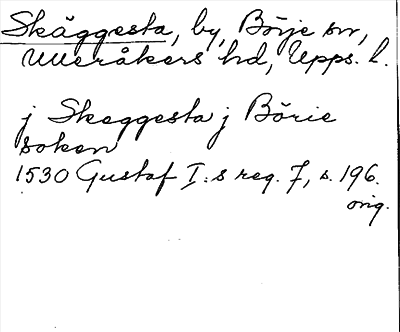 Skäggesta, by, Börje sn,
Ulleråkers hd, Upps. l.
j Skeggesta j Börie
soken
1530 Gustaf I:s reg. 7, s. 196.
orig.